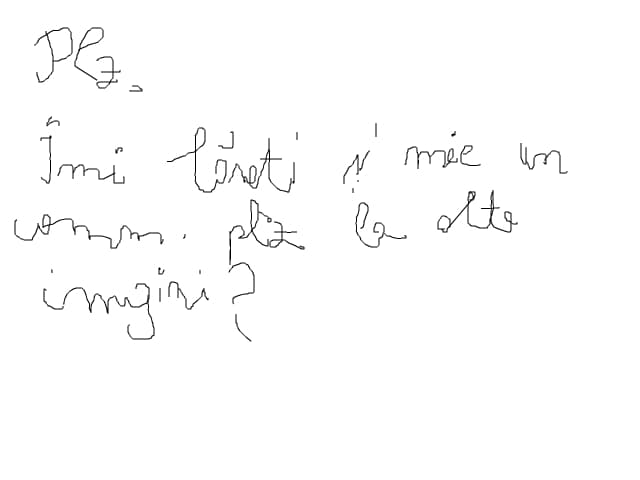 Plz,
Îmi lăsați și mie un
comm. plz la alte
imagini?